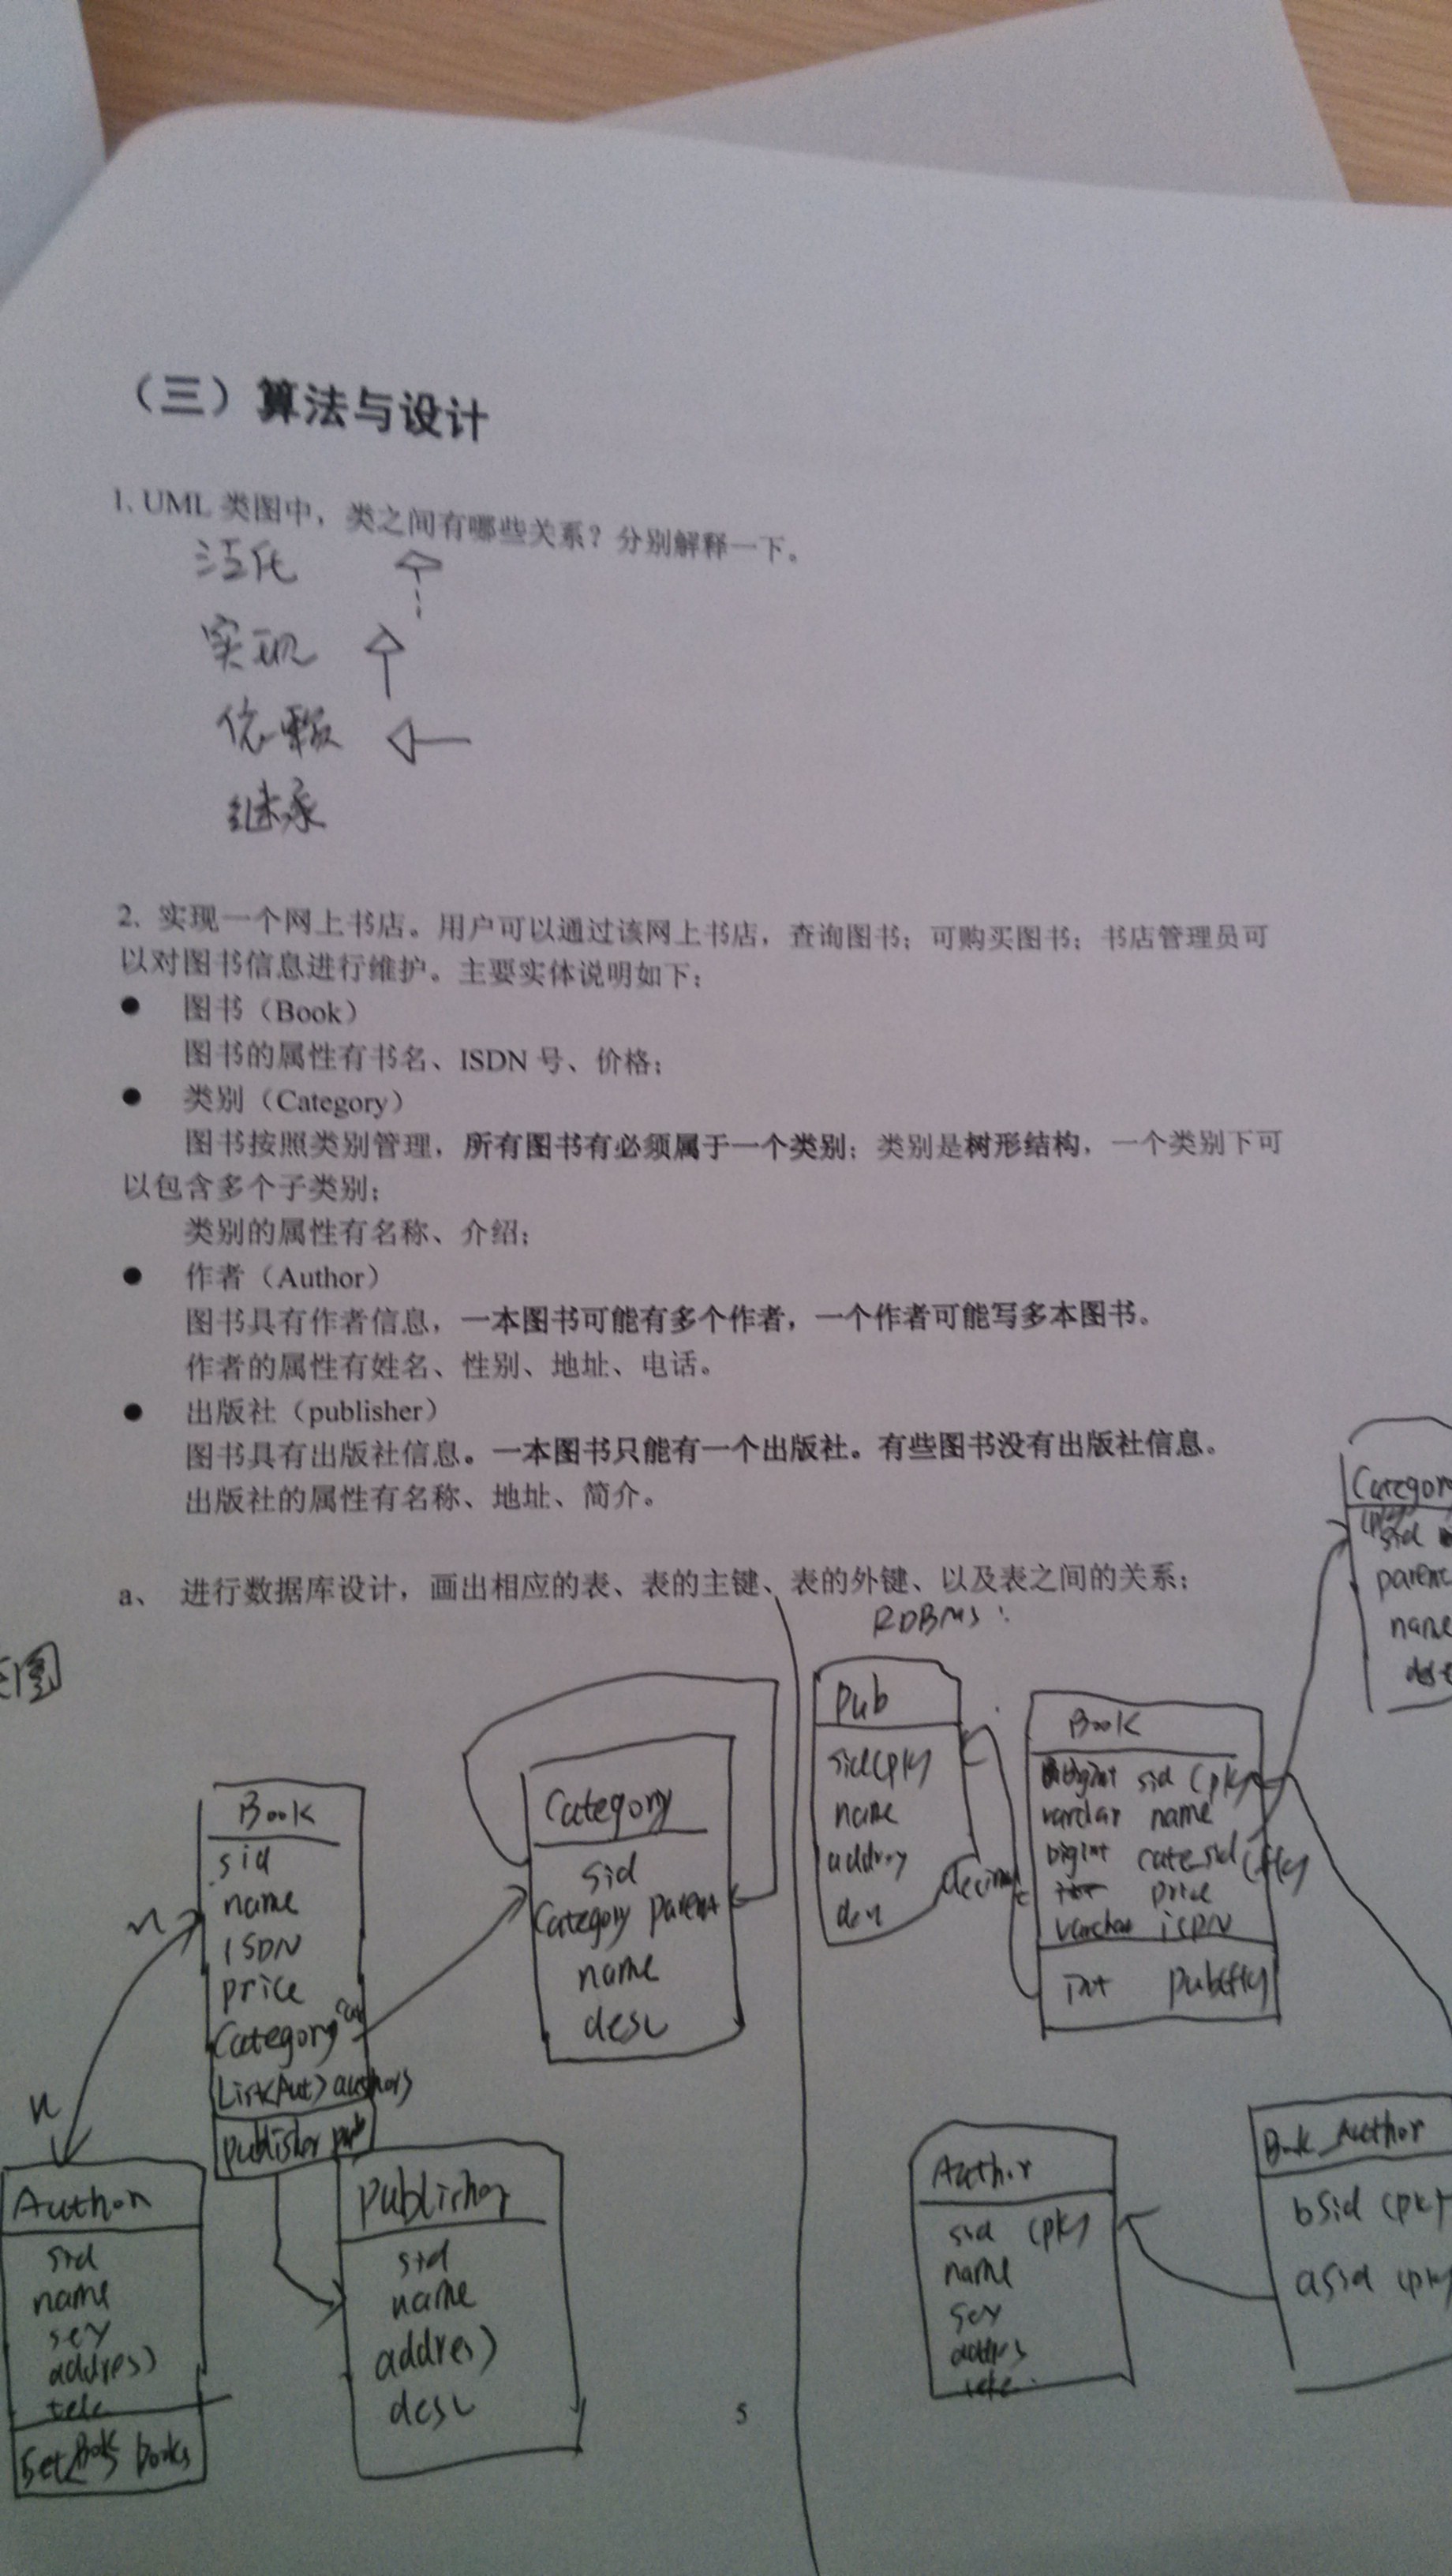 （三）算法与设计
1、UML 类图中，类之间有哪些关系？分别解释一下。
泛化
实现
依赖
继承
2、实现一个网上书店。用户可以通过该网上书店，查询图书；可购买图书；书店管理员可
以对图书信息进行维护。主要实体说明如下：
● 图书（Book）
图书的属性有书名、ISDN 号、价格；
● 类别（Category）
图书按照类别管理，所有图书有必须属于一个类别；类别是树形结构，一个类别下可
以包含多个子类别；
类别的属性有名称、介绍；
● 作者（Author）
图书具有作者信息，一本图书可能有多个作者，一个作者可能写多本图书。
作者的属性有姓名、性别、地址、电话。
● 出版社（publisher）
图书具有出版社信息。一本图书只能有一个出版社。有些图书没有出版社信息。
出版社的属性有名称、地址、简介。
a、 进行数据库设计，画出相应的表、表的主键、表的外键、以及表之间的关系；
图
Book
sid
name
ISDN
price
Category
List<Aut> authors
publisher pub
n
n
Category
sid
Category parent
name
desc
Author
sid
name
sex
address
tele
Set<Book> books
publisher
sid
name
address
desc
RDBMS：
pub
sid(pk)
name
address
des
Book
bigint sid (pk)
varchar name
bigint cate_sid (fk)
decimal price
varchar isdn
int pub(fk)
Category
sid
parent
name
des
Author
sid (pk)
name
sex
address
tele
Book_Author
bsid (pk)
asid (pk)
5